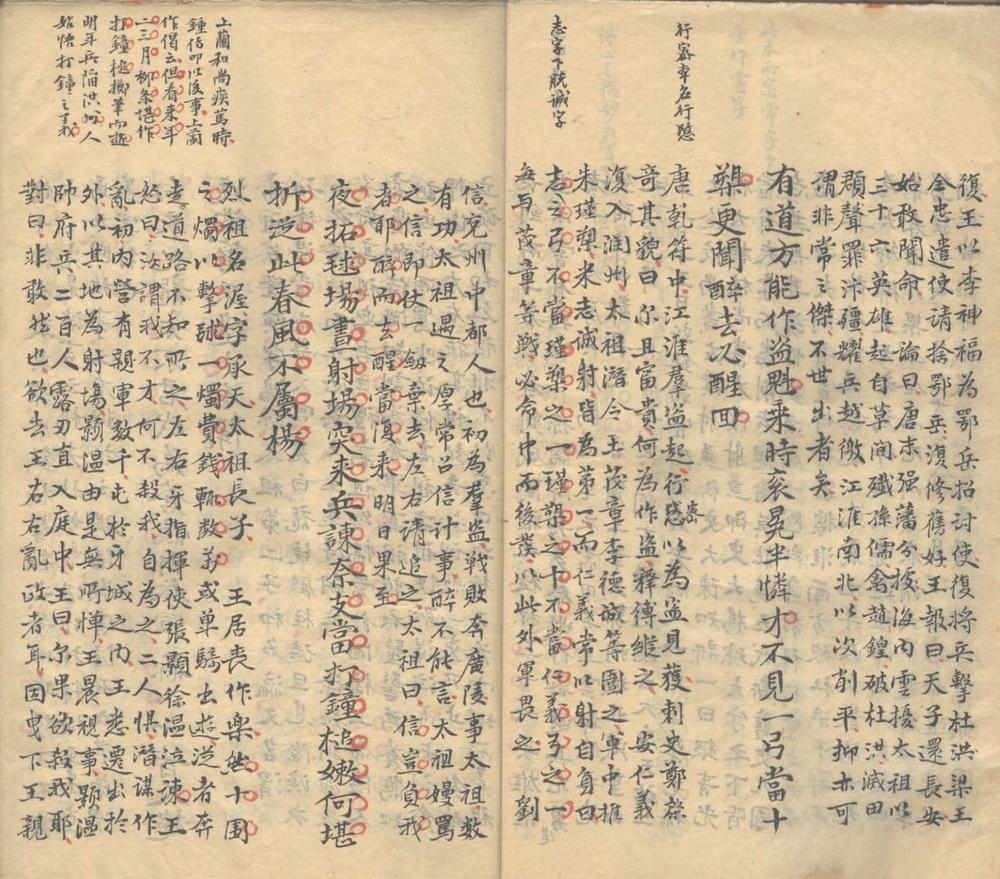 行密本名行愍
志字下脱誠字
復王以李神福為鄂兵招討使復將兵擊杜洪梁王
全忠遣使請捨鄂兵復修舊好王報曰天子還長安
始敢聞命論曰唐末强藩分據海内雲擾太祖以
三十六英雄起自草間殲孫儒禽趙鍠破杜洪滅田
頵聲罪汴疆耀兵越徼江淮南北以次削平抑亦可
謂非常之傑不世出者矣
有道方能作盗魁乘時衮冕半憐才不見一弓當十
槊更聞醉去必醒回
唐乾符中江淮羣盗起行愍以為盗見獲刺史鄭棨
密
奇其貌曰尔且富貴何為作盗釋縛縱之 安仁義
復入润州太祖潛令王茂章李德誠等圍之軍中推
朱瑾槊米志誠射皆為第一而仁義常以射自負曰
志之弓不當瑾槊之一瑾槊之十不當仁義弓之一
每与茂章等戰必命中而後發以此外軍畏之 劉
上蘭和尚疾篤時
鍾傳叩以後事上蘭
作偈云但看来年
二三月柳条堪作
打鐘槌擲筆而逝
明年兵陷洪州人
始悟打鐘之義
信兖州中都人也初為羣盗戰敗奔廣陵事太祖数
有功太祖遇之厚常召信計事醉不能言太祖嫚罵
之信即仗一劔棄去左右請追之太祖曰信豈負我
者耶醉而去醒當復来明日果至
夜拓毬場晝射場突来兵諫奈支當打鐘槌嫩何堪
折逆此春風不屬楊
烈祖名渥字承天太祖長子 王居丧作樂然十围
之燭以擊毬一燭費錢輒数萬或单騎出遊従者奔
走道路不知所之左右牙指揮使張顥徐温泣諫王
怒曰汝謂我不才何不殺我自為之二人惧潜謀作
亂初内營有親軍数千屯於牙城之内王悉遷出於
外以其地為射場顥温由是無所憚王晨視事顥温
帥府兵二百人露刃直入庭中王曰尔果欲殺我耶
對曰非敢然也欲去王右右亂政者耳因曳下王親